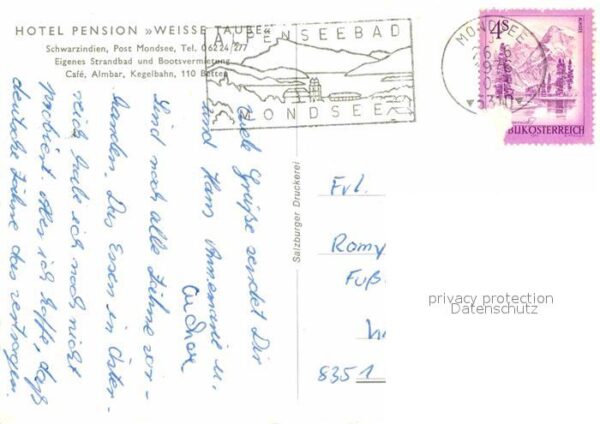 HOTEL PENSION »WEISSE TAUBE«
Schwarzindien, Post Mondsee, Tel. 06224/277
Eigenes Strandbad und Bootsvermietung
Café, Almbar, Kegelbahn, 110 Betten
ALPENSEEBAD
MONDSEE
MONDSEE
5310
4S
UBLIK ÖSTERREICH
Viele Grüße sendet Dir
und Hans Annemarie u.
Gudrun
Sind noch alle Zähne vor-
handen. Das Essen in Öster-
reich habe ich noch nicht
probiert. Aber ich hoffe, daß
deutsche Zähne das vertragen.
Salzburger Druckerei
Frl.
Romy
Fuß
8351
privacy protection
Datenschutz